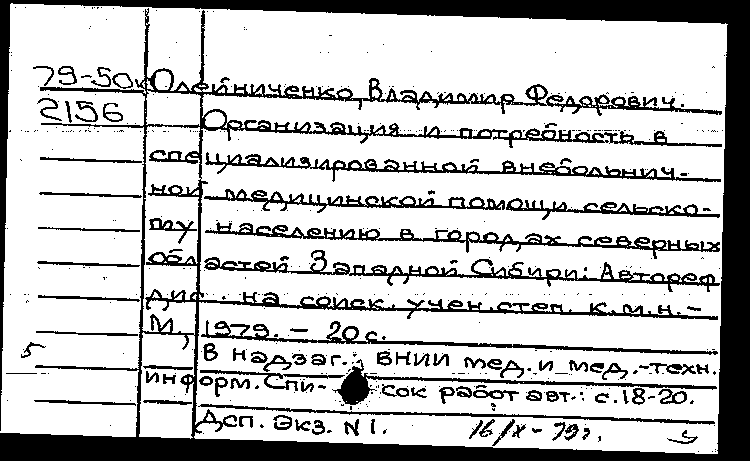 79-50к Олейниченко, Владимир Федорович.
2156 Организация и потребность в
специализированной внебольнич-
ной медицинской помощи сельско-
му населению в городах северных
областей Западной Сибири: Автореф
дис. на соиск. учен. степ. к.м.н. -
М., 1979. - 20 с.
5 В надзаг.: ВНИИ мед. и мед.-техн.
информ. Спи- сок работ авт.: с. 18-20.
Дсп. Экз. N 1. 16/IX - 79г.